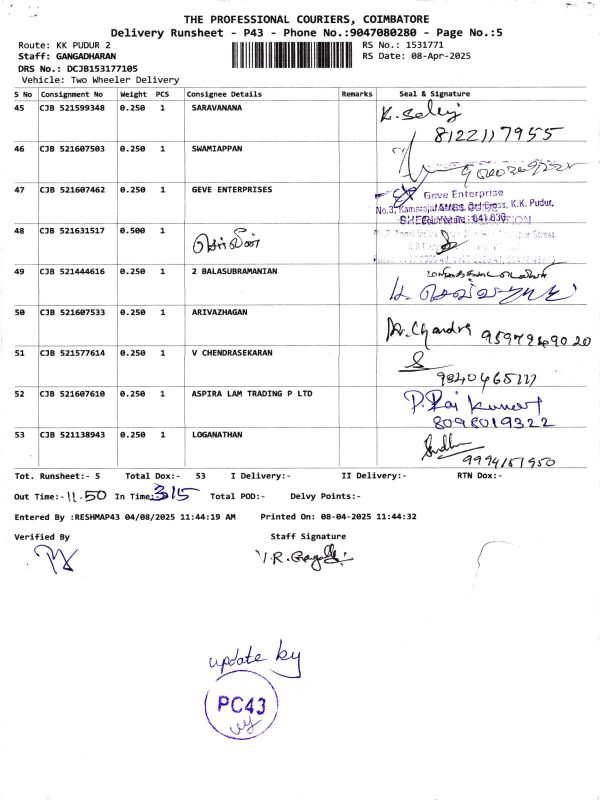 THE PROFESSIONAL COURIERS, COIMBATORE
Delivery Runsheet - P43 - Phone No.:9047080280 - Page No.:5
Route: KK PUDUR 2 RS No.: 1531771
Staff: GANGADHARAN RS Date: 08-Apr-2025
DRS No.: DCJB153177105
Vehicle: Two Wheeler Delivery
S No Consignment No Weight PCS Consignee Details Remarks Seal & Signature
45 CJB 521599348 0.250 1 SARAVANANA
8122117955
46 CJB 521607503 0.250 1 SWAMIAPPAN
47 CJB 521607462 0.250 1 GEVE ENTERPRISES
Geve Enterprise
48 CJB 521631517 0.500 1
செர்லின்
49 CJB 521444616 0.250 1 2 BALASUBRAMANIAN
50 CJB 521607533 0.250 1 ARIVAZHAGAN
Ar. Chandra 9597969020
51 CJB 521577614 0.250 1 V CHENDRASEKARAN
52 CJB 521607610 0.250 1 ASPIRA LAM TRADING P LTD
P. Raj Kumar
8098019322
53 CJB 521138943 0.250 1 LOGANATHAN
9994151950
Tot. Runsheet:- 5 Total Dox:- 53 I Delivery:- II Delivery:- RTN Dox:-
Out Time:- 11.50 In Time:- 315 Total POD:- Delvy Points:-
Entered By :RESHMAP43 04/08/2025 11:44:19 AM Printed On: 08-04-2025 11:44:32
Verified By Staff Signature
update by
PC43